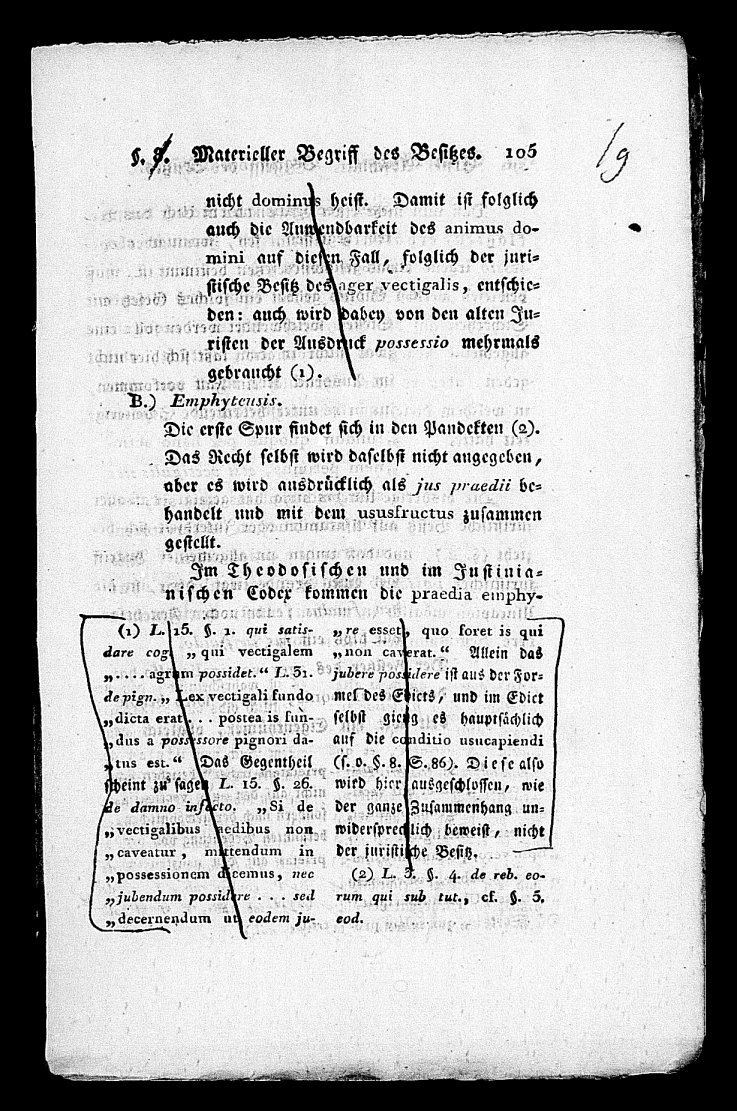 §. 9. Materieller Begriff des Besitzes. 105
19
nicht dominus heist. Damit ist folglich
auch die Anwendbarkeit des animus do-
mini auf diesen Fall, folglich der juri-
stische Besitz des ager vectigalis, entschie-
den: auch wird dabey von den alten Ju-
risten der Ausdruck possessio mehrmals
gebraucht (1).
B.) Emphyteusis.
Die erste Spur findet sich in den Pandekten (2).
Das Recht selbst wird daselbst nicht angegeben,
aber es wird ausdrücklich als jus praedii be-
handelt und mit dem ususfructus zusammen
gestellt.
Im Theodosischen und im Justinia-
nischen Codex kommen die praedia emphy-
(1) L. 15. §. 1. qui satis-
dare cog. „qui vectigalem
„.... agrum possidet.“ L. 31.
de pign. „Lex vectigali fundo
„dicta erat . . . postea is fun-
„dus a possessore pignori da-
„tus est.“ Das Gegentheil
scheint zu sagen L. 15. §. 26.
de damno infecto. „Si de
„vectigalibus aedibus non
„caveatur, mittendum in
„possessionem dicemus, nec
„jubendum possidere . . . sed
„decernendum ut eodem ju-
„re esset, quo foret is qui
„non caverat.“ Allein das
jubere possidere ist aus der For-
mel des Edicts, und im Edict
selbst gieng es hauptsächlich
auf die conditio usucapiendi
(s. o. §. 8. S. 86). Diese also
wird hier ausgeschlossen, wie
der ganze Zusammenhang un-
widersprechlich beweist, nicht
der juristische Besitz.
(2) L. 3. §. 4. de reb. eo-
rum qui sub tut., cf. §. 5.
eod.